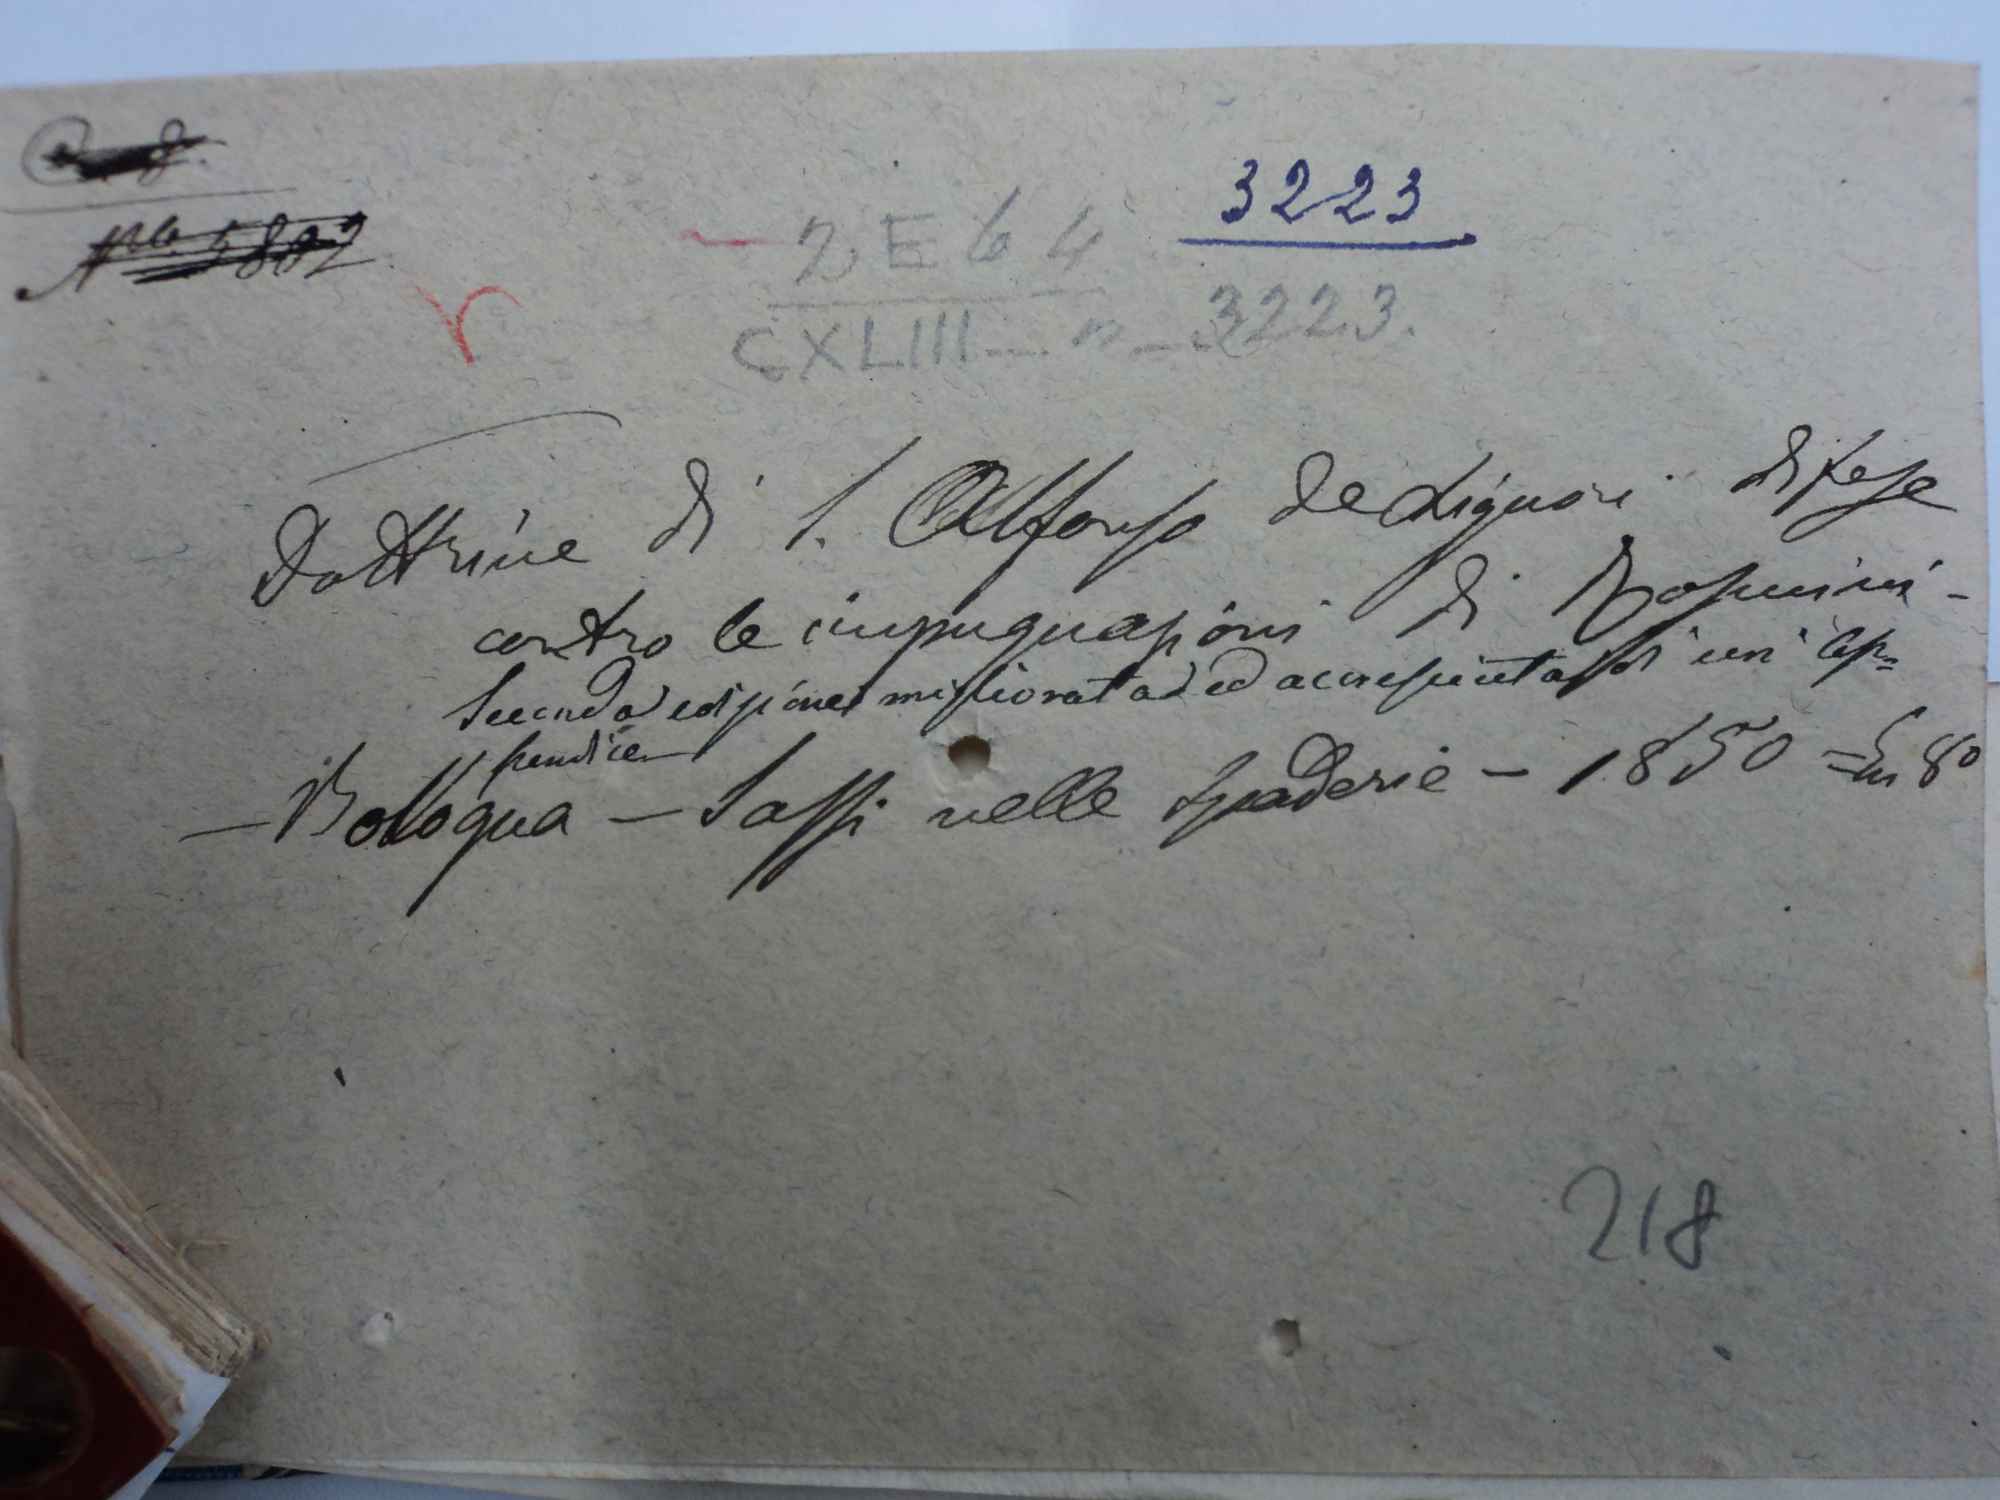 No 5802
3223
2 E 64
CXLIII - n - 3223.
Dottrine di S. Alfonso de Liguori difese
contro le impugnazioni di Rosmini -
Seconda edizione migliorata ed accresciuta di un' ap=
pendice
- Bologna - Sassi nelle Spaderie - 1850 = In 8º
218